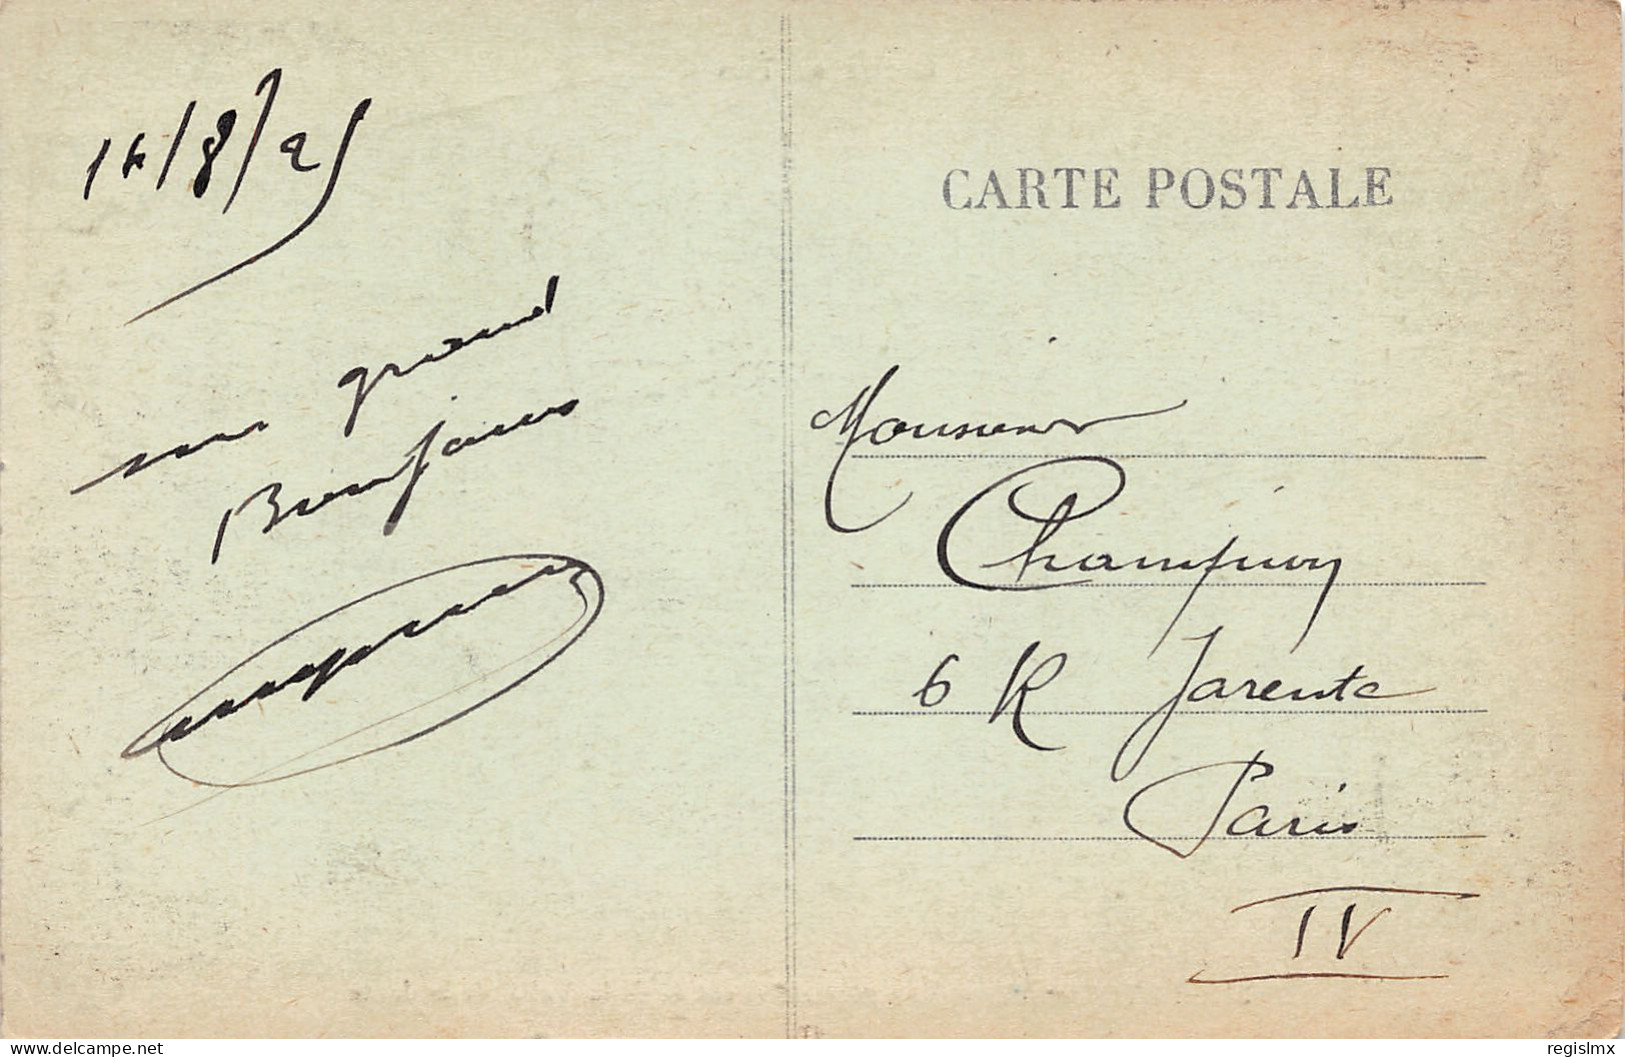 14/8/25
un grand
Bonjour
CARTE POSTALE
Monsieur
6 R Jarente
Paris
IV
https://www.delcampe.net
regislmx